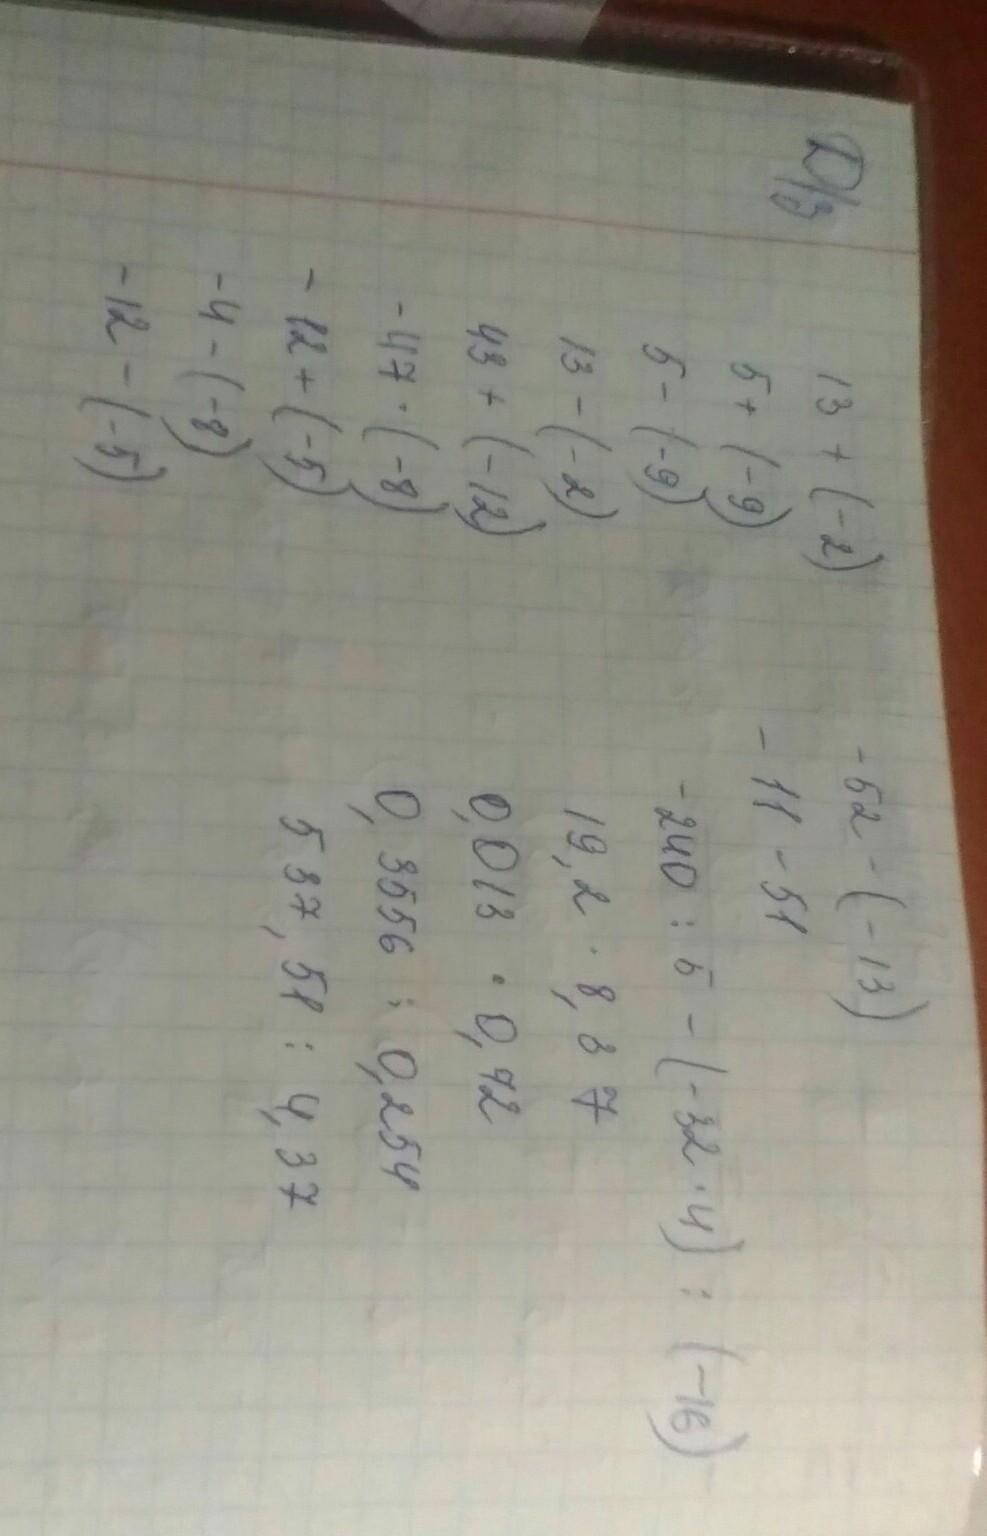 Д/з
13 + (-2)
5 + (-9)
5 - (-9)
13 - (-2)
43 + (-12)
-47 · (-8)
-12 + (-5)
-4 - (-8)
-12 - (-5)
-52 - (-13)
-11 - 51
-240 : 5 - (-32 · 4) : (-16)
19,2 · 8,37
0,013 · 0,72
0,3556 : 0,254
537,51 : 4,37